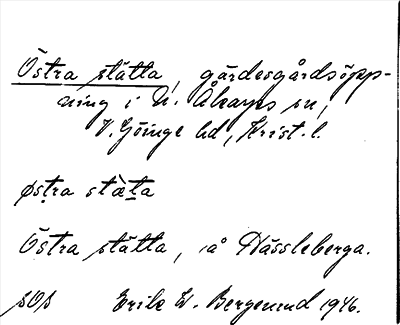 Östra stätta, gärdesgårdsöpp-
ning i N. Åkarps sn,
V. Göinge hd, Krist. l.
østra stæ̀ta
Östra stätta, å Hässleberga.
SOS Erik W. Bergemund 1946.